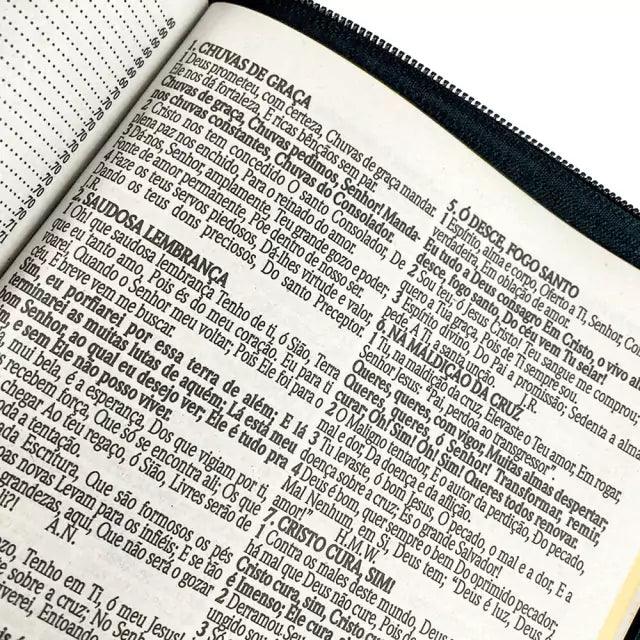 1. CHUVAS DE GRAÇA
1 Deus prometeu, com certeza, Chuvas de graça mandar,
Ele nos dá fortaleza, E ricas bênçãos sem par.
Chuvas de graça, Chuvas pedimos, Senhor! Manda-
nos chuvas constantes, Chuvas do Consolador.
2 Cristo nos tem concedido O santo Consolador, De
plena paz nos enchido, Para o reinado do amor.
3 Dá-nos, Senhor, amplamente Teu grande gozo e poder,
fonte de amor permanente, Põe dentro de nosso ser.
4 Faze os teus servos piedosos, Dá-lhes virtude e valor,
Dando os teus dons preciosos, Do santo Preceptor.
J.R.
2. SAUDOSA LEMBRANÇA
1 Oh! que saudosa lembrança Tenho de ti, ó Sião, Terra
que eu tanto amo, Pois és do meu coração. Eu para ti
voarei, Quando o Senhor meu voltar; Pois Ele foi para o
céu, E breve vem me buscar.
Sim, eu porfiarei por essa terra de além; E lá
terminarei as muitas lutas de aquém; Lá está meu
bom Senhor, ao qual eu desejo ver; Ele é tudo pra
mim, e sem Ele não posso viver.
mui bela, é a esperança, Dos que vigiam por ti,
recebem força, Que só se encontra ali; Os que
chegar Ao feu regaço, ó Sião, Livres serão de
toda a tentação.
Escritura, Que são formosos os pés
boas novas Levam para os infiéis; E se tão
grandezas, aqui, Que não será o gozar
A.N.
Tenho em Ti, ó meu Jesus!
sobre a cruz; No Senhor
Entoando
5. Ó DESCE, FOGO SANTO
1 Espírito, alma e corpo, Oferto a Ti, Senhor, Como
verdadeira, Em oblação de amor.
Eu tudo a Deus consagro Em Cristo, o vivo altar;
desce, fogo santo, Do céu vem Tu selar!
2 Sou teu, ó Jesus Cristo! Teu sangue me comprou;
quero a Tua graça, Pois de Ti sempre sou.
3 Espírito divino, Do Pai a promissão; Sedenta a alma
pede, A Ti, a santa unção. J.R.
6. NA MALDIÇÃO DA CRUZ
1 Tu, na maldição da cruz, Elevaste o Teu amor, Em rogar,
Senhor Jesus: "Pai, perdoa ao transgressor".
Queres, queres, com vigor, Muitas almas despertar;
Queres, queres, ó Senhor! Transformar, remir,
curar, Oh! Sim! Oh! Sim! Queres todos renovar.
2 O Maligno tentador, É o autor da perdição, Do pecado,
mal e dor, Da doença e da aflição.
3 Tu levaste, ó bom Jesus, O pecado, o mal e a dor, E a
doença sobre a cruz; És o grande Salvador!
4 Deus é bom, quer sempre o bem Do oprimido pecador;
Mal Nenhum, em Si, Deus tem; "Deus é luz, Deus
amor!" H.M.W.
7. CRISTO CURA, SIM!
1 Contra os males deste mundo, Deus
há mal que Deus não cure, Pois
Cristo cura, sim, Cristo
é imenso; Ele cura,
2 Derramou Seu
ungido sou